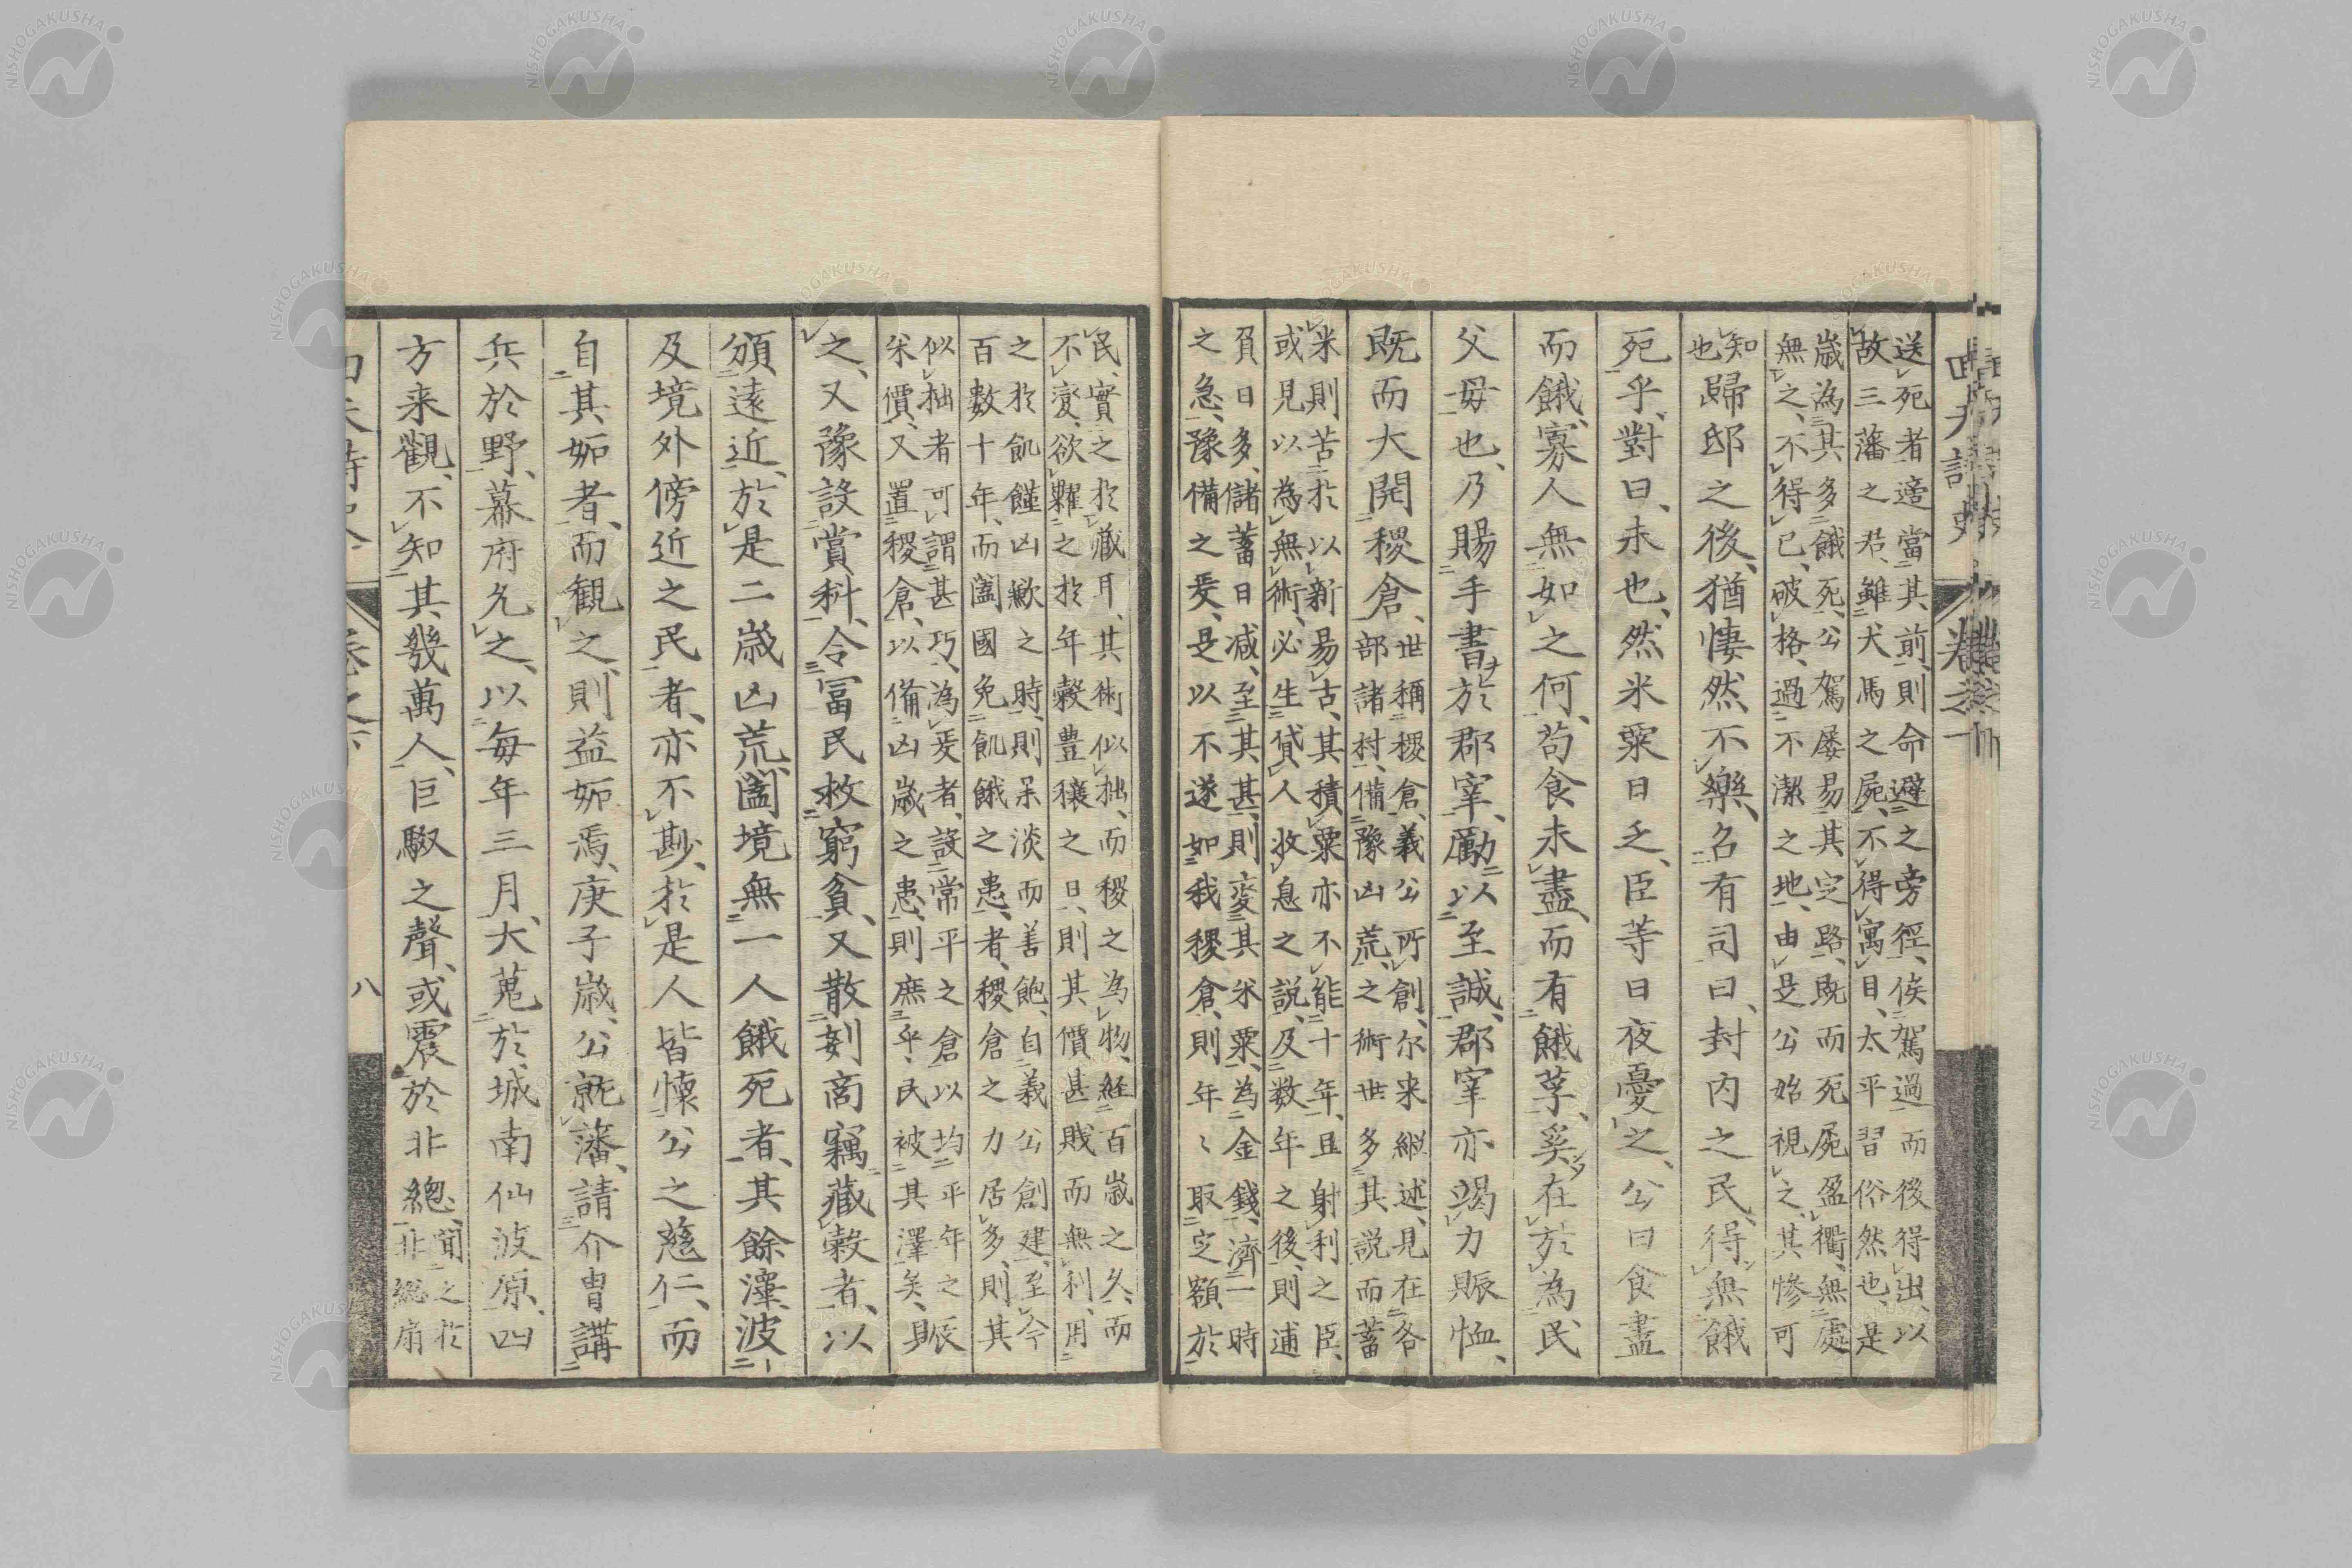 送死者適當其前則命避之旁徑俟駕過而後得出以
故三藩之君雖犬馬之屍不得寓目太平習俗然也是
歲為其多餓死公駕屡易其定路既而死屍盈衢無處
無之不得已破格過不潔之地由是公始視之其慘可
知
也
歸邸之後猶悽然不樂召有司曰封内之民得無餓
死乎對曰未也然米粟日乏臣等日夜憂之公曰食盡
而餓寡人無如之何苟食未盡而有餓莩奚在於為民
父毋也乃賜手書於郡宰勵以至誠郡宰亦竭力賑恤
既而大開稷倉
世稱稷倉義公所創尔来継述見在各
部諸村備豫凶荒之術世多其説而蓄
米則苦於以新易古其積粟亦不能十年且射利之臣
或見以為無術必生貸人收息之説及数年之後則逋
負日多儲蓄日减至其甚則変其米粟為金錢濟一時
之急豫備之爰是以不遂如我稷倉則年〻取定額於
民實之於藏月其術似拙而稷之為物経百歳之久而
不変欲糶之於年穀豊穰之日則其價甚賎而無利用
之於飢饉凶歉之時則呆淡而善飽自義公創建至今
百數十年而闔國免飢餓之患者稷倉之力居多則其
似拙者可謂甚巧為爰者設常平之倉以均平年之辰
米價又置稷倉以備凶歳之患則庶乎民被其澤矣具
之又豫設賞科令冨民救窮貧又散刻商竊藏穀者以
頒遠近於是二歳凶荒闔境無一人餓死者其餘澤波
及境外傍近之民者亦不尠於是人皆懐公之慈仁而
自其妬者而観之則益妬焉庚子歳公就藩請介冑講
兵於野幕府允之以毎年三月大蒐於城南仙波原四
方来觀不知其幾萬人巨駇之聲或震於非總
聞之於
非総扇
卷之下
八